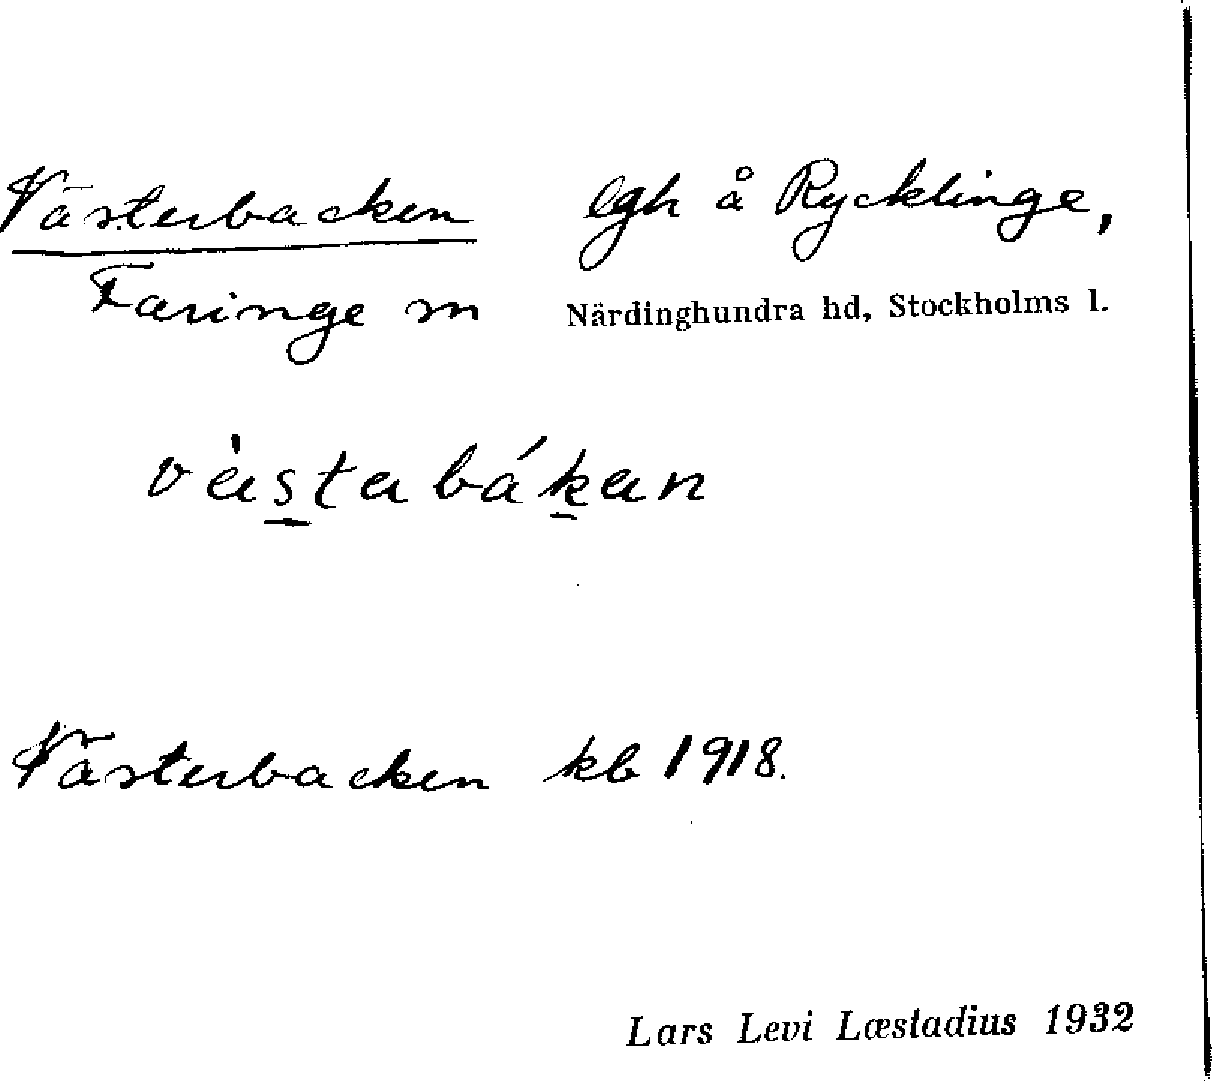 Västerbacken lgh å Rycklinge,
Faringe sn Närdinghundra hd, Stockholms l.
Västerbacken kb 1918.
Lars Levi Læstadius 1932